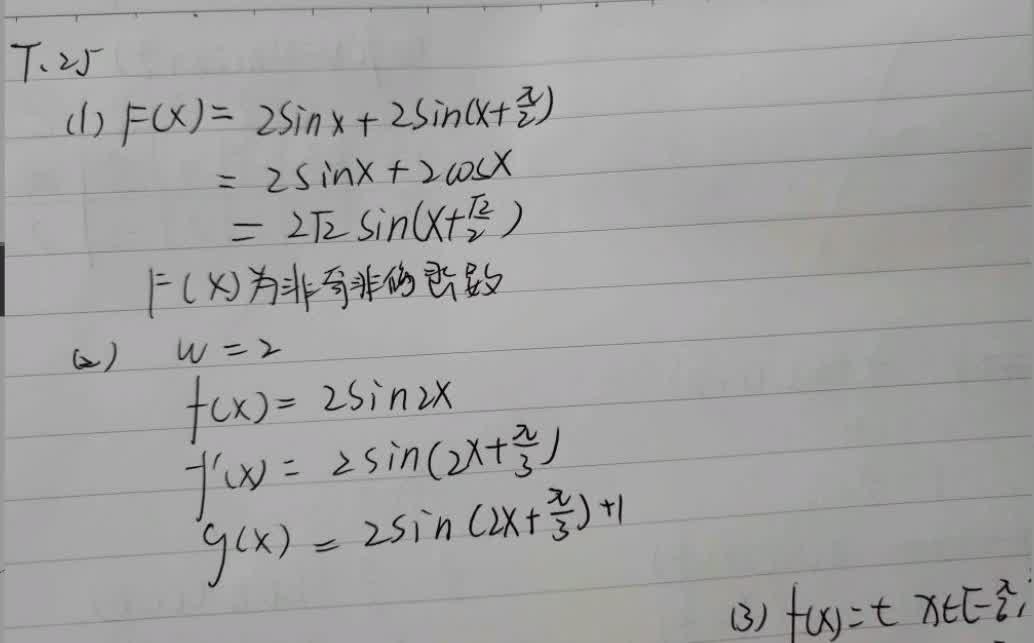 T.25
(1) F(x) = 2sinx + 2sin(x+π/2)
= 2sinx + 2cosx
= 2√2 sin(x+√2/2)
F(x)为非奇非偶函数
(2) w = 2
f(x) = 2sin2x
f'(x) = 2sin(2x+π/3)
g(x) = 2sin(2x+π/3)+1
(3) f(x)=t x∈[-π/2,